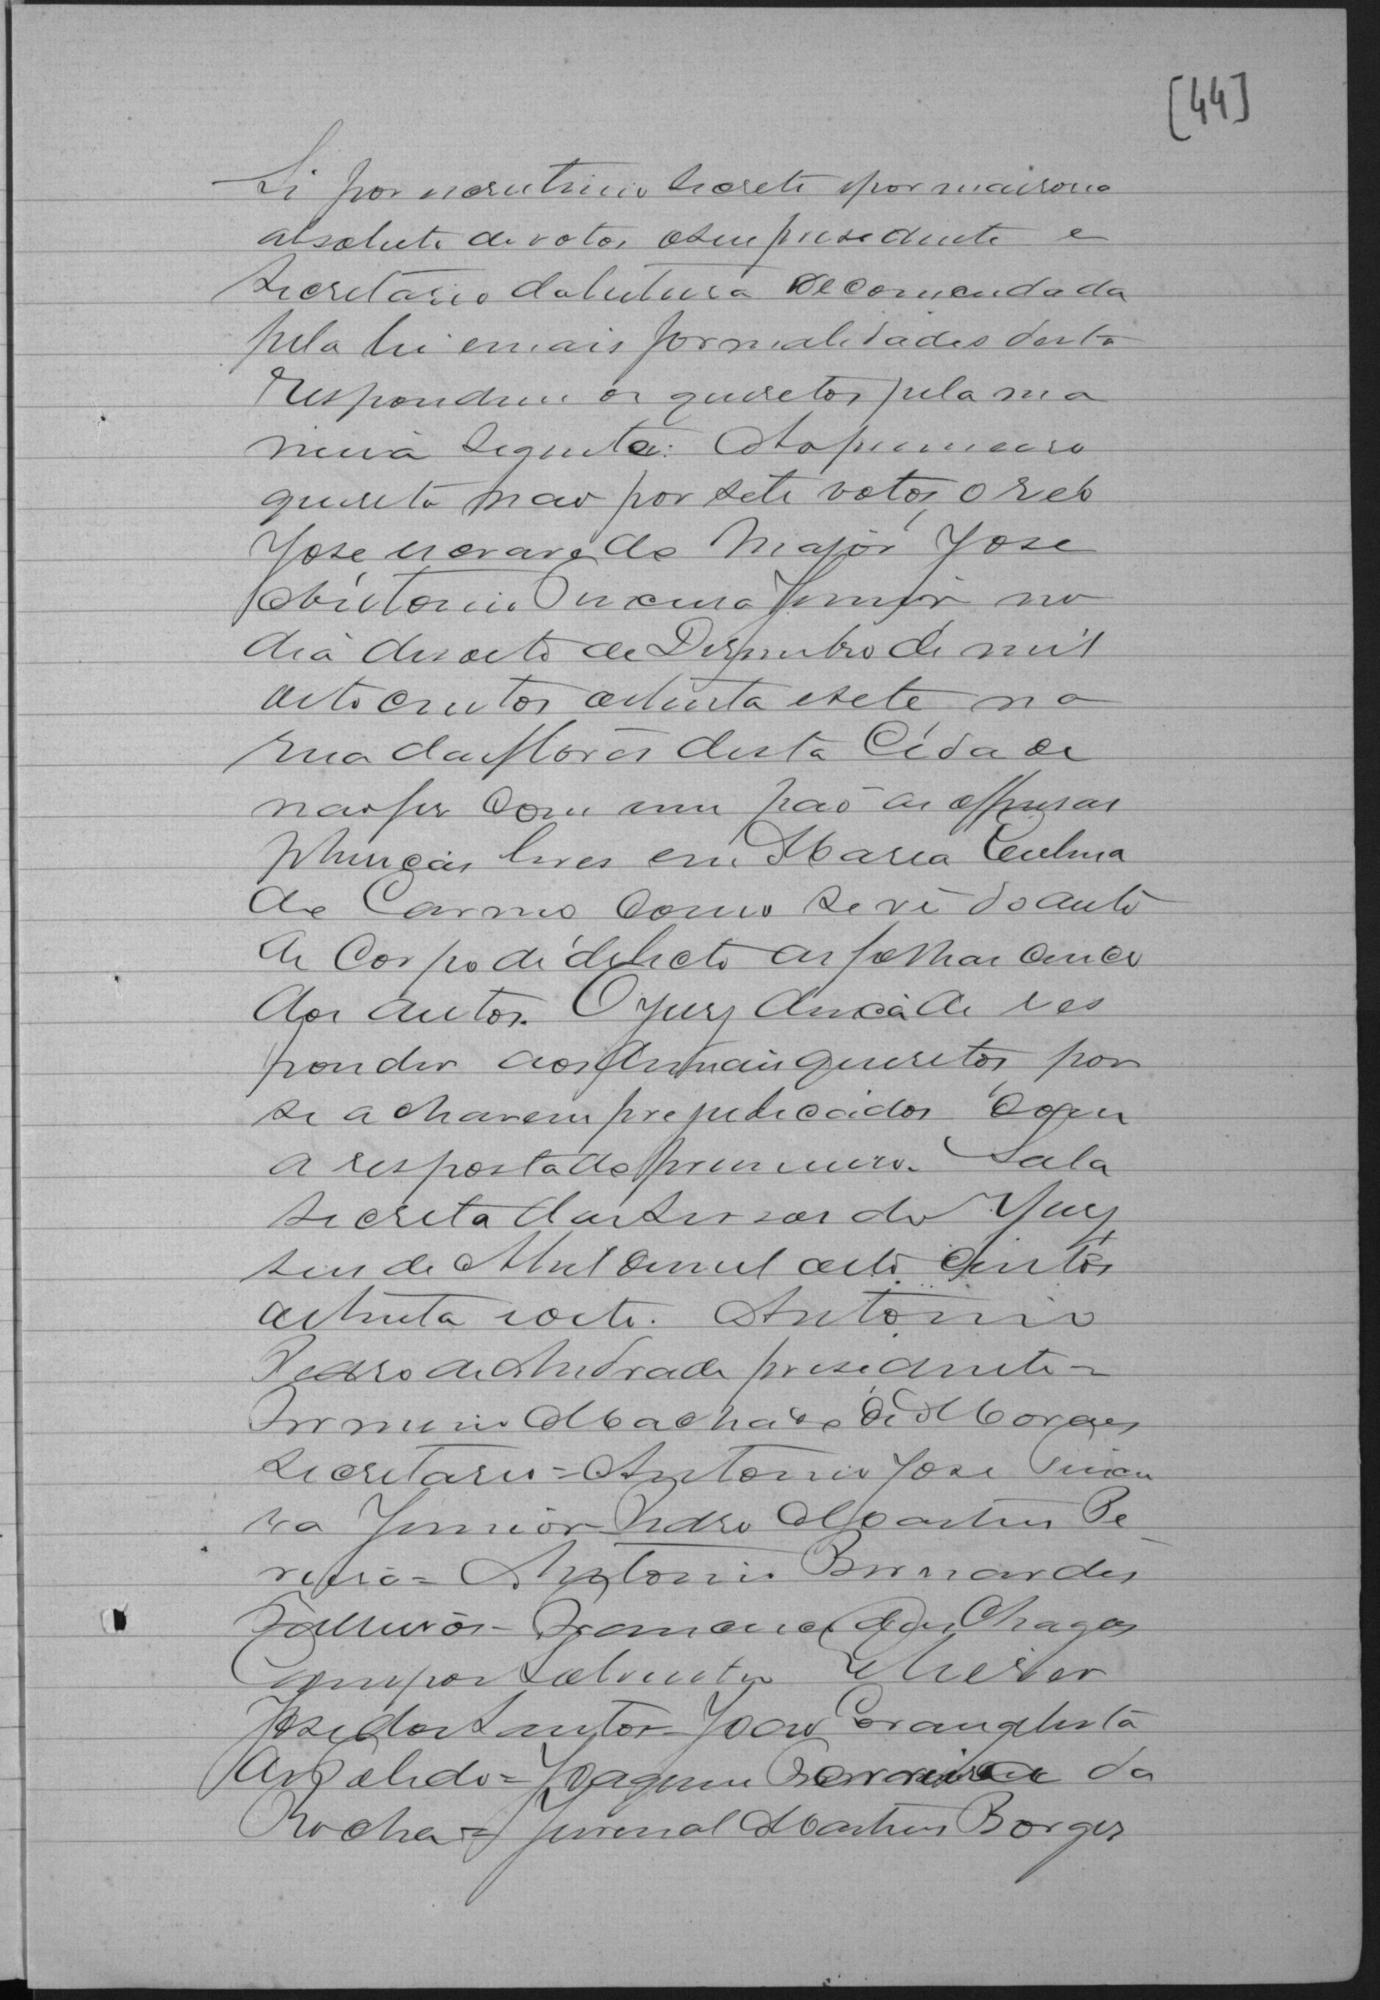 [44]
Si por escrutinio secreto por maioria
absoluta de votos o seu presidente e
Secretario da leitura recomendada
pela lei e mais formalidades desta
respondeu os quesetos pela ma
neira seguinte: Ao primeiro
quesito não por sete votos, o reo
Jose escravo do Major Jose
Antonio Teixeira Junior no
dia desoito de Dezembro de mil
oito centos oitenta e sete na
rua das flores desta Cidade
não fes com um páo as offensas
phisicas leves em Maria
do Carmo como se vê do auto
de Corpo de delicto as folhas cinco
dos autos. O Jury deixa de res
ponder aos demais quesetos por
se acharem prejudicados com
a resposta do primeiro. Sala
secreta das Sessões do Jury
seis de Abril de mil oito centos
oitenta e oito. Antonio
Pedro de Andrade presidente =
Firmino Machado de Moraes
Secretario = Antonio Jose Teixei
ra Junior = Pedro Martins Pe
reira = Antonio Bernardes
Francisco das Chagas
Campos
Jose dos Santos = João Evangelista
de = Joaquim da
Rocha = Juvenal Martins Borges